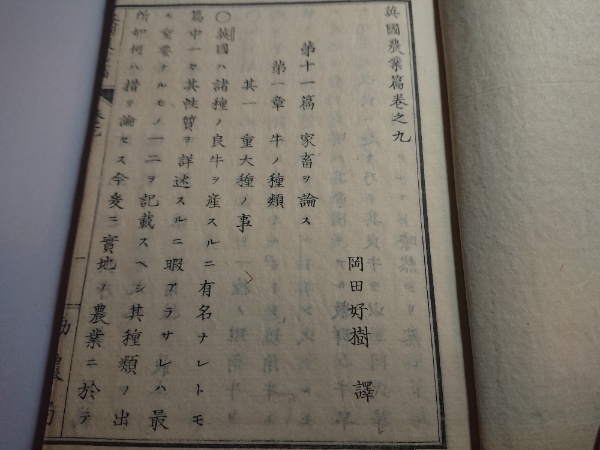 英國農業篇卷之九
岡田好樹 譯
第十一篇 家畜ヲ論ス
第一章 牛ノ種類
其一 重大種ノ事
○英國ハ諸種ノ良牛ヲ産スルニ有名ナレトモ
篇中一々其性質ヲ詳述スルニ暇アラサレハ最
モ重要ナルモノ一二ヲ記載スヘシ其種類ノ出
所如何ハ措テ論セス今爰ニ實地ノ農業ニ於テ
一
勸農局